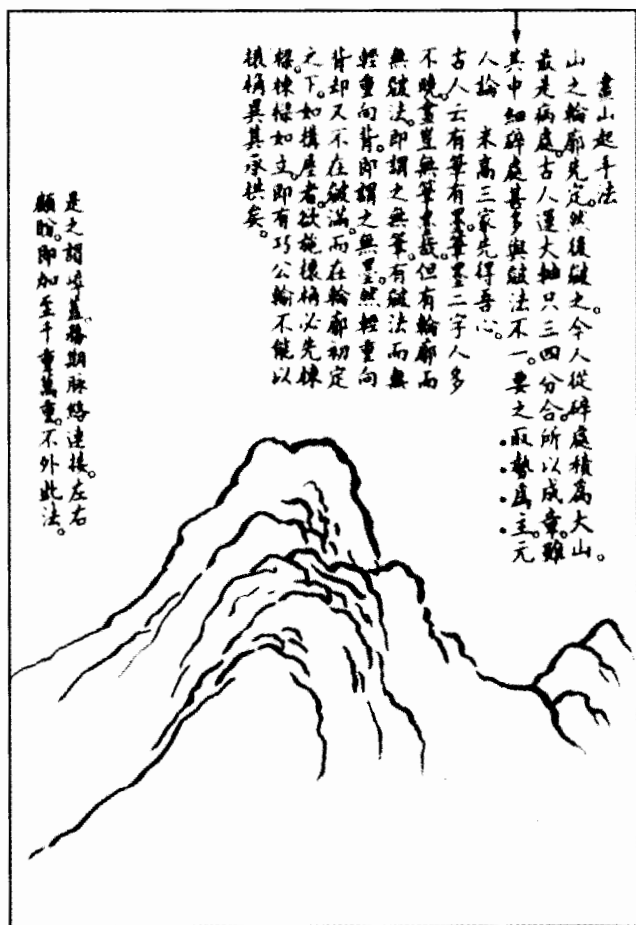 畫山起手法
山之輪廓先定。然後皴之。今人從碎處積為大山。
最是病處。古人運大軸只三四分合所以成章。雖
其中細碎處甚多與皴法不一。要之取勢為主。元
人論 米高三家先得吾心。
古人云有筆有墨。筆墨二字人多
不曉。畫豈無筆墨哉。但有輪廓而
無皴法。即謂之無筆。有皴法而無
輕重向背。即謂之無墨。然輕重向
背却又不在皴滿。而在輪廓初定
之下。如構屋者。欲施榱桷必先棟
樑。棟樑如立。即有巧公輸不能以
榱桷異其承拱矣。
是之謂嶂蓋。務期脉絡連接。左右
顧盼。即加至千重萬重。不外此法。